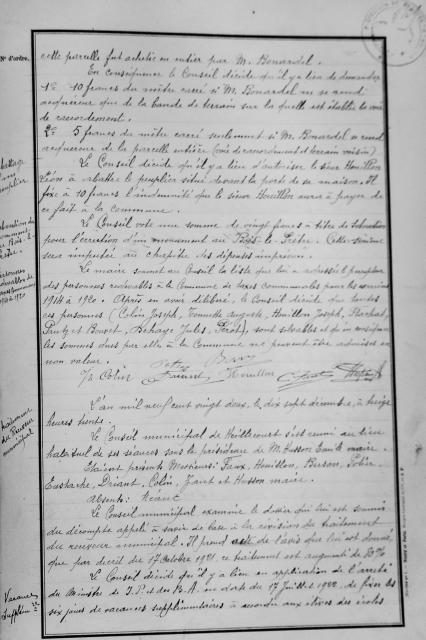 N° d'ordre.
cette parcelle fut achetée en entier par M. Bonardel.
En conséquence le Conseil décide qu'il y a lieu de demander
1° 10 francs du mètre carré si M. Bonardel ne se rend
acquéreur que de la bande de terrain sur laquelle est établie la voie
de raccordement.
2° 5 francs du mètre carré seulement si M. Bonardel se rend
acquéreur de la parcelle entière (voie de raccordement et terrain voisin)
Le Conseil décide qu'il y a lieu d'autoriser le sieur Houillon
Léon à abattre le peuplier situé devant la porte de sa maison. Il
fixe à 10 francs l'indemnité que le sieur Houillon aura à payer de
ce fait à la commune.
Le Conseil vote une somme de vingt francs à titre de subvention
pour l'érection d'un monument au Bois-le-Prêtre. Cette somme
sera imputée au chapitre des dépenses imprévues.
Le maire soumet au Conseil la liste que lui a adressée le percepteur
des personnes redevables à la Commune de taxes communales pour les années
1914 à 1920. Après en avoir délibéré, le Conseil décide que toutes
ces personnes (Colin Joseph, auguste, Houillon Joseph,
et Bouvet, Jules, ), sont solvables et qu'en conséquence
les sommes dues par elle à la Commune ne peuvent être admises en
non valeur.
Colin Houillon
L'an mil neuf cent vingt deux, le dix sept décembre, à treize
heures trente.
Le Conseil municipal de s'est réuni au lieu
habituel de ses séances sous la présidence de M. Husson Emile maire.
Etaient présents Messieurs: Faux, Houillon, Busson,
Eustache, Driant, Colin, et Husson maire.
Absents: Néant
Le Conseil municipal examine le dossier qui lui est soumis
du décompte appelé à servir de base à la révision du traitement
du receveur municipal. Il prend acte de l'avis qui lui est donné,
que par décret du 17 Octobre 1921, ce traitement est augmenté de %
Le Conseil décide qu'il y a lieu en application de l'arrêté
du Ministre de I. P. et des B. A. en date du 17 Juillet 1922, de fixer les
six jours de vacances supplémentaires à accorder aux élèves des écoles
peuplier
traitement
du Receveur
municipal
Vacances